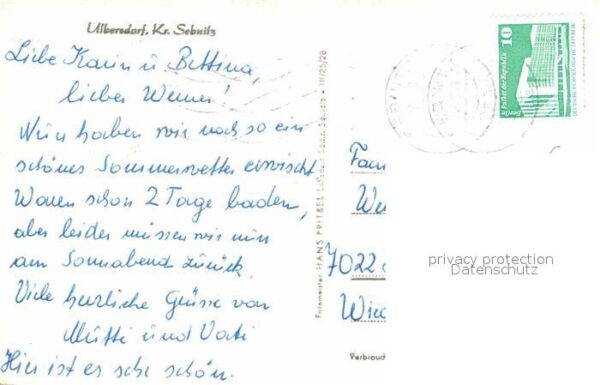 Ulbersdorf, Kr. Sebnitz
Liebe Karin u. Bettina,
lieber Werner!
Nun haben wir noch so ein
schönes Sommerwetter erwischt
Waren schon 2 Tage baden,
aber leider müssen wir nun
am Sonnabend zurück
Viele herzliche Grüsse von
Mutti und Vati
Hier ist es sehr schön.
Fotomeister HANS PRITZEL
10
Berlin Palast der Republik
Fam
We
7022
Wie
Verbrauch
privacy protection
Datenschutz